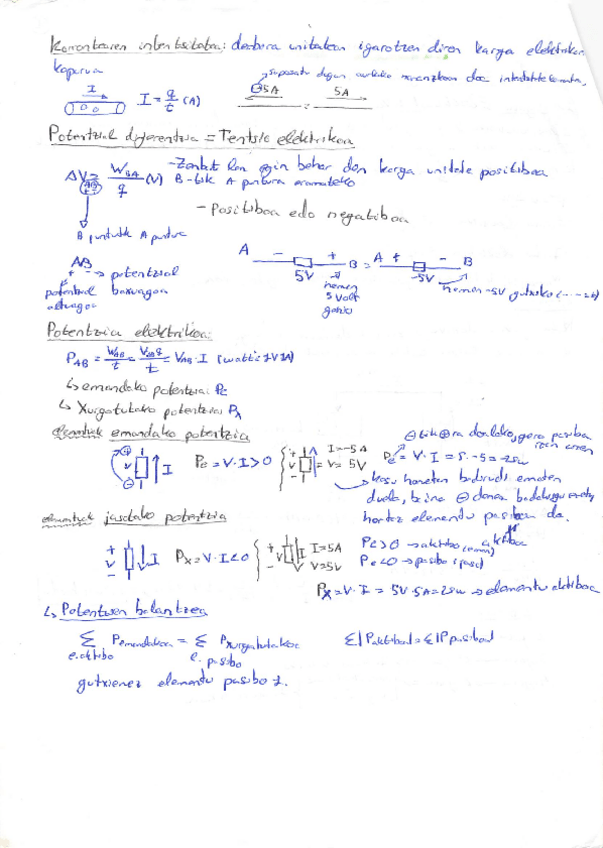 Korrontearen intentsitatea: denbora unitatean igarotzen diren karga elektrikoen
kopurua
suposatu dugun aurkako noranzkoan doa intentsitatea.
I
I = q/t (A)
-5A = 5A
Potentzial diferentzia = Tentsio elektrikoa
ΔV_AB = W_BA/q (V)
-Zenbat lan egin behar den karga unitate positiboa
B-tik A puntura eramateko
- Positiboa edo negatiboa
B puntutik A puntura
AB
+ - → potentzial
potentzial baxuagoa
altuagoa
A - + B = A + - B
5V -5V
hemen
5 volt
gehio
hemen -5V gutxiko
Potentzia elektrikoa:
P_AB = W_AB/t = V_AB q/t = V_AB · I (watt = 1V 1A)
↳ emandako potentzia: Pe
↳ Xurgatutako potentzia: Px
elementuak emandako potentzia
+ V - I Pe = V·I > 0 { + V - I = -5A V = 5V
Pe = V·I = 5·-5 = -25W
kasu honetan badirudi ematen
duela, baina ⊖ denez
hortaz elementu pasiboa da.
elementuak jasotako potentzia
+ V - I Px = V·I < 0 { + V - I I = 5A V = 5V
Pe > 0 → aktiboa (eman)
Pe < 0 → pasiboa (jaso)
Px = V·I = 5V·5A = 25W → elementu aktiboa
↳ Potentzien balantzea
Σ Pemandakoa = Σ Pxurgatutakoa
e.aktibo e. pasibo
Σ|Paktiboa| = Σ|Ppasiboa|
gutxienez elementu pasibo 1.